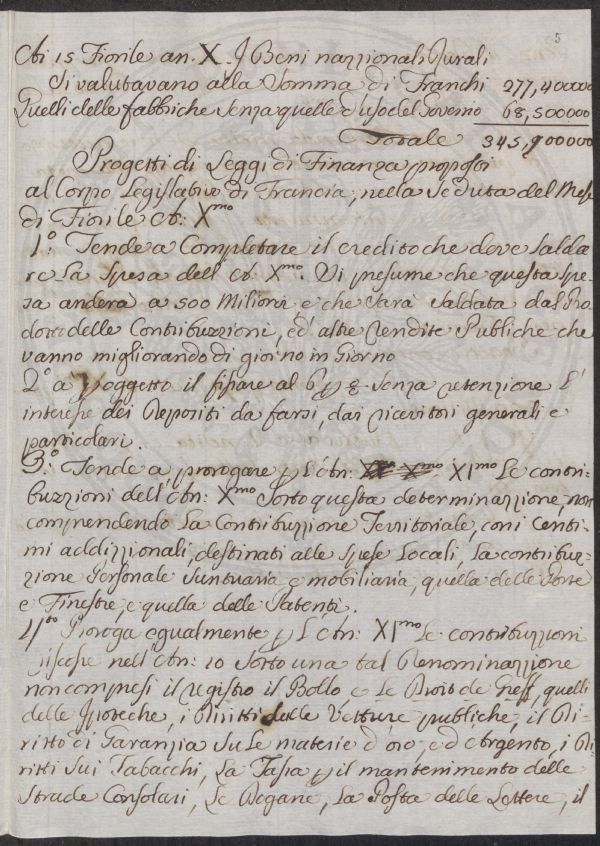 5
Ai 15 Fiorile an. X. I Beni nazzionali Rurali
si valutavano alla Somma di Franchi 277,400000
Quelli delle fabbriche senza quelle d'uso del Governo 68,500000
Totale 345,900000
Progetti di Leggi di Finanza proposti
al Corpo Legislativo di Francia, nella Seduta del Mese
di Fiorile an: Xmo
1.o Tende a Completare il credito che deve Salda
re La Spesa dell' an: Xmo. Si presume che questa spe
sa anderà a 500 Milioni e che sarà saldata dal Pro
dotto delle Contribuzzioni, ed' altre rendite Publiche che
vanno migliorando di giorno in Giorno
2.o à p oggetto il fissare al 6 p % senza retenzione L'
interesse dei Depositi da farsi, dai ricevitori generali e
particolari.
3.o Tende a prorogare p L'An: XImo Le contri-
buzzioni dell' An: Xmo Sotto questa determinazzione, non
comprendendo La Contribuzzione Territoriale, coni Centi-
mi addizzionali, destinati alle Spese Locali, La contribuz-
zione Personale Suntuaria e mobiliaria, quella delle Porte
e Finestre, e quella delle Patenti.
4.to Proroga egualmente p L'An: XImo Le contribuzzioni
riscosse nell' An: 10 Sotto una tal Denominazzione
non compresi il registro il Bollo e Le Droit de Greff, quelli
delle Ipoteche, i Diritti delle Vetture publiche, il Di-
ritto di Garanzia Su Le materie d'oro, e d'Argento, i Di-
ritti Sui Tabacchi, La Tassa p il mantenimento delle
Strade Consolari, Le Dogane, La Posta delle Lettere, il